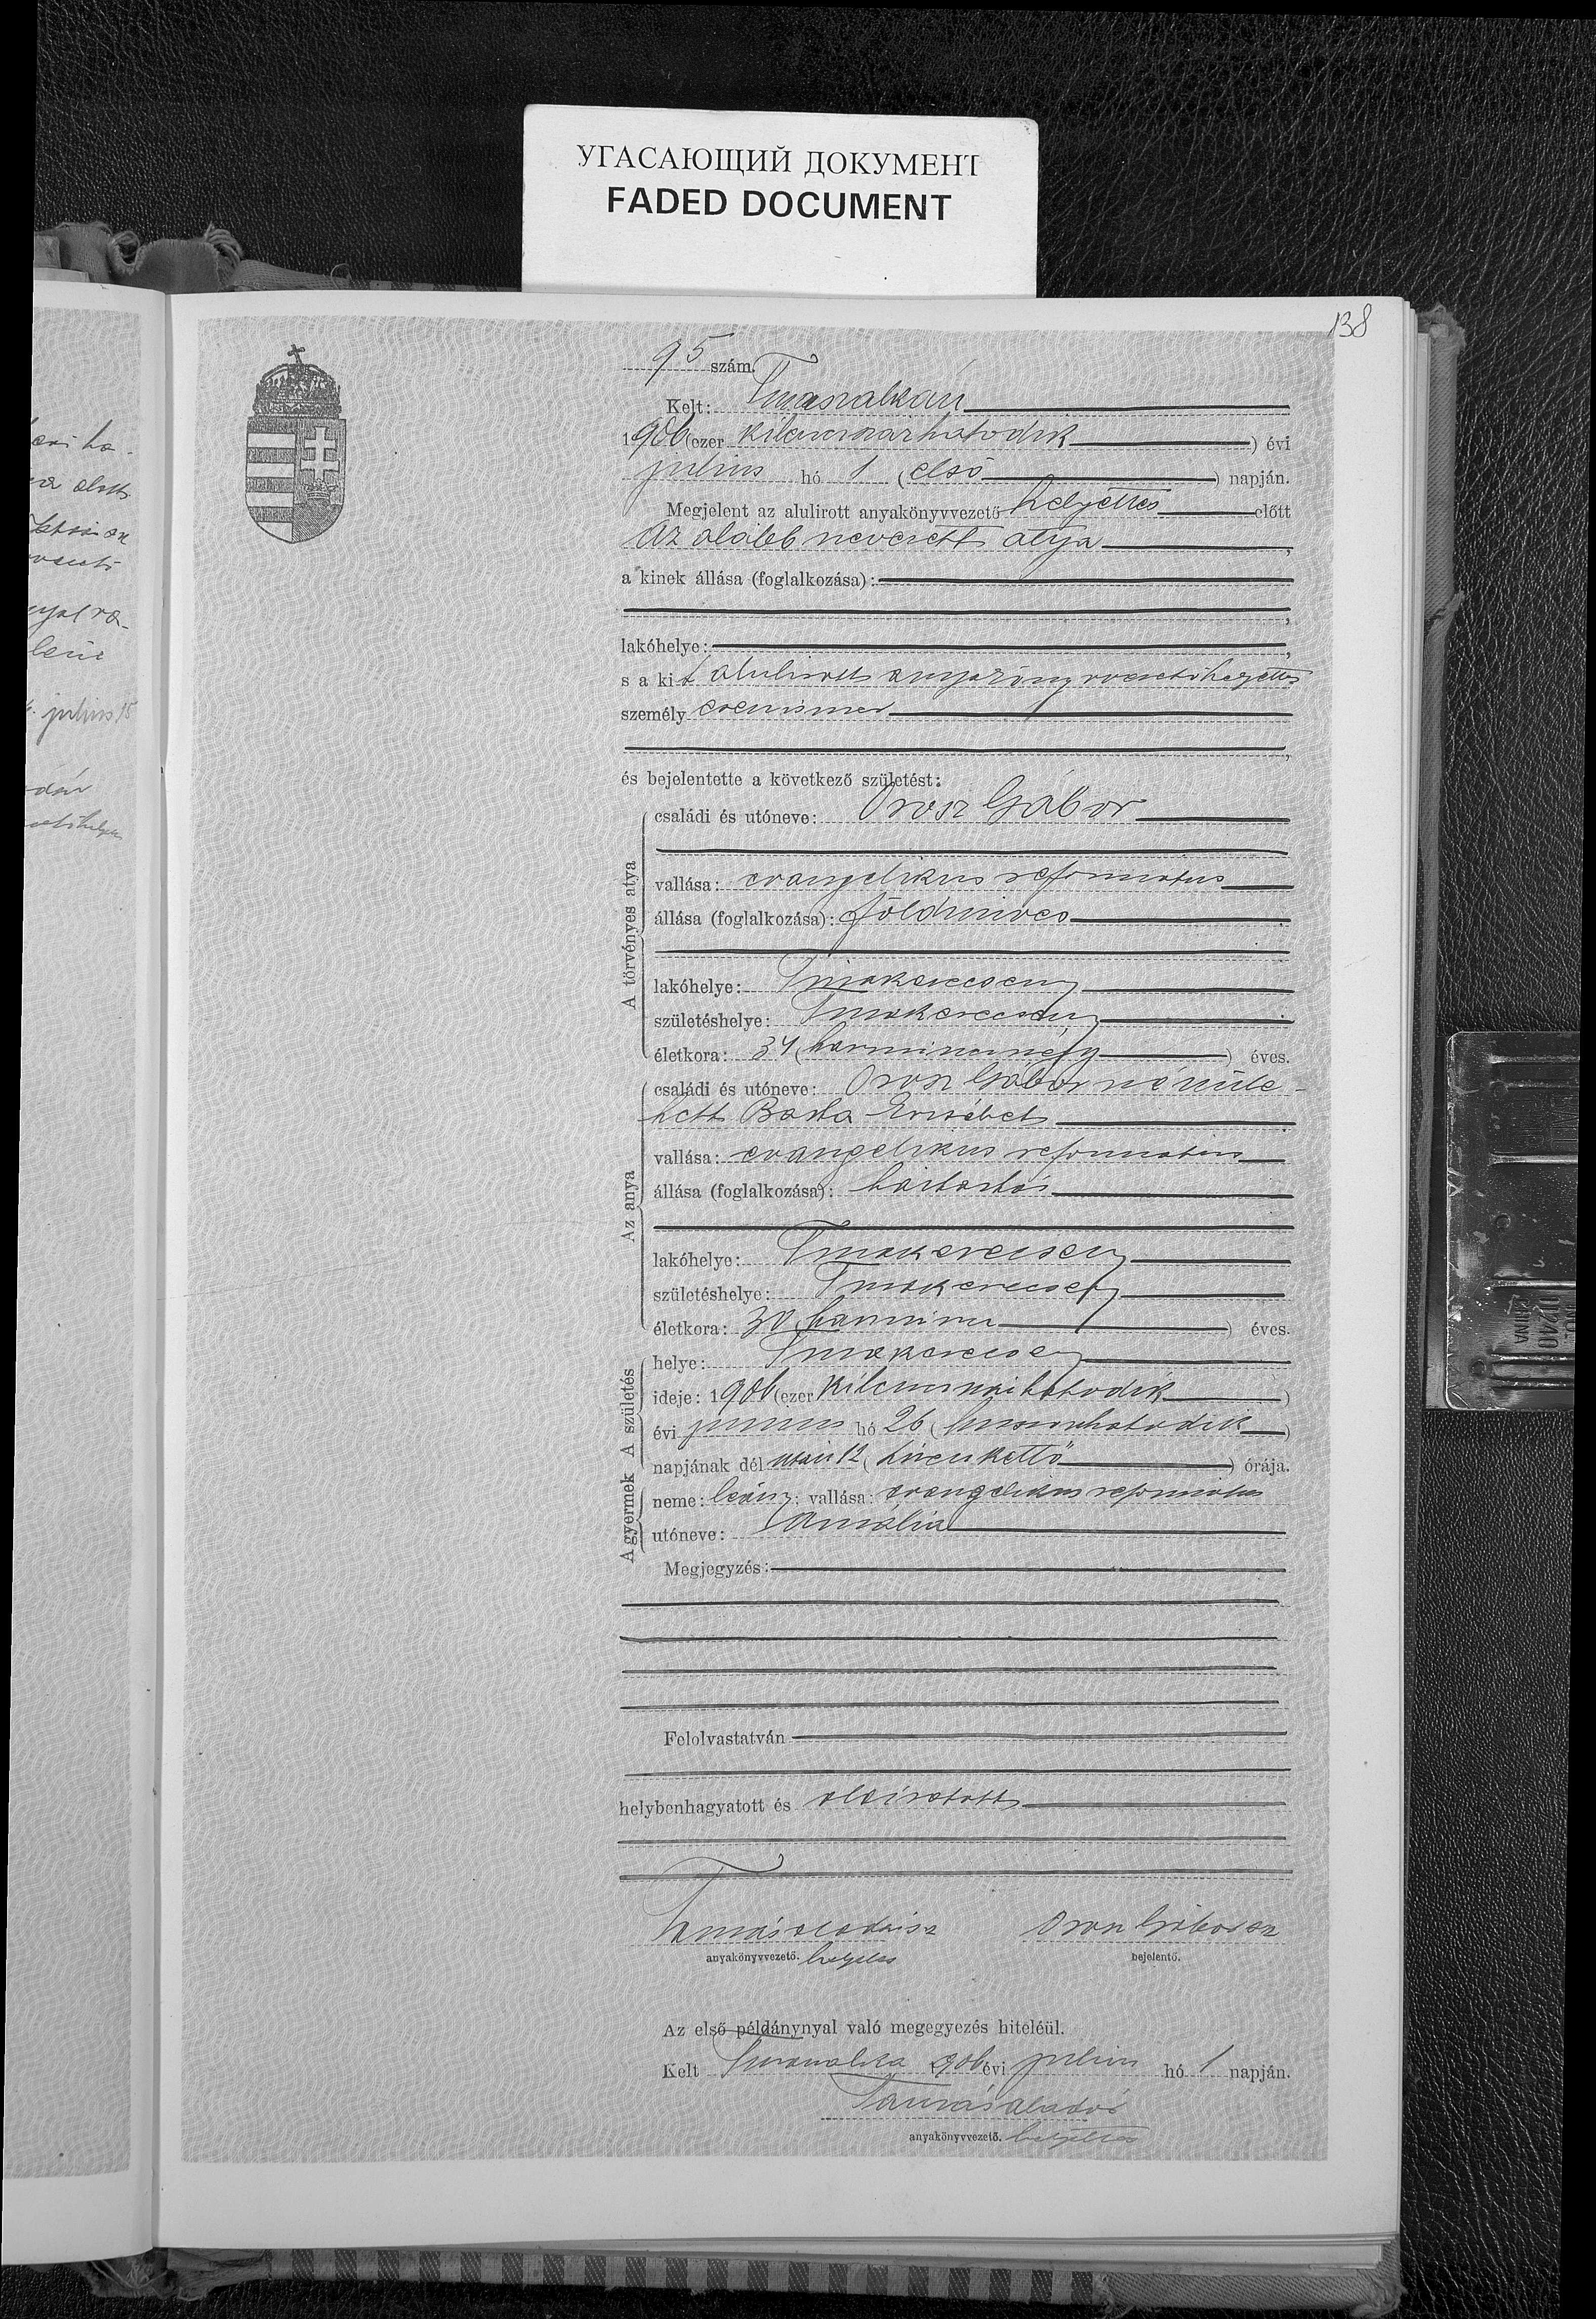 УГАСАЮЩИЙ ДОКУМЕНТ
FADED DOCUMENT
138
95 szám.
Kelt: Tiszaszalkán
1906 (ezer kilencszázhatodik) évi
julius hó 1 (első) napján.
Megjelent az alulirott anyakönyvvezető helyettes előtt
az alább nevezett atya,
a kinek állása (foglalkozása):
lakóhelye:
s a kit alulirott anyakönyvvezetőhelyettes
személy
és bejelentette a következő születést:
A törvényes atya
családi és utóneve: Orosz Gábor
vallása: evangelikus reformatus
állása (foglalkozása): földmives
lakóhelye: Tiszakerecseny
születéshelye: Tiszakerecseny
életkora: 34 (harmincnégy) éves.
Az anya
családi és utóneve: Orosz Gáborné szüle-
tett Barta Erzsébet
vallása: evangelikus reformatus
állása (foglalkozása): háztartás
lakóhelye: Tiszakerecseny
születéshelye: Tiszakerecseny
életkora: 30 (harminc) éves.
A születés
helye: Tiszakerecseny
ideje: 1906 (ezer kilencszázhatodik)
évi junius hó 26 (huszonhatodik)
napjának dél után 12 (tizenkettő) órája.
A gyermek
neme: leány; vallása: evangelikus reformatus
utóneve: Amália
Megjegyzés:
Felolvastatván
helybenhagyatott és aláiratott
Tamás Aladár Orosz Gábor
anyakönyvvezető. helyettes bejelentő.
Az első példánynyal való megegyezés hiteléül.
Kelt Tiszaszalka 1906 évi julius hó 1 napján.
Tamás Aladár
anyakönyvvezető. helyettes
julius 15